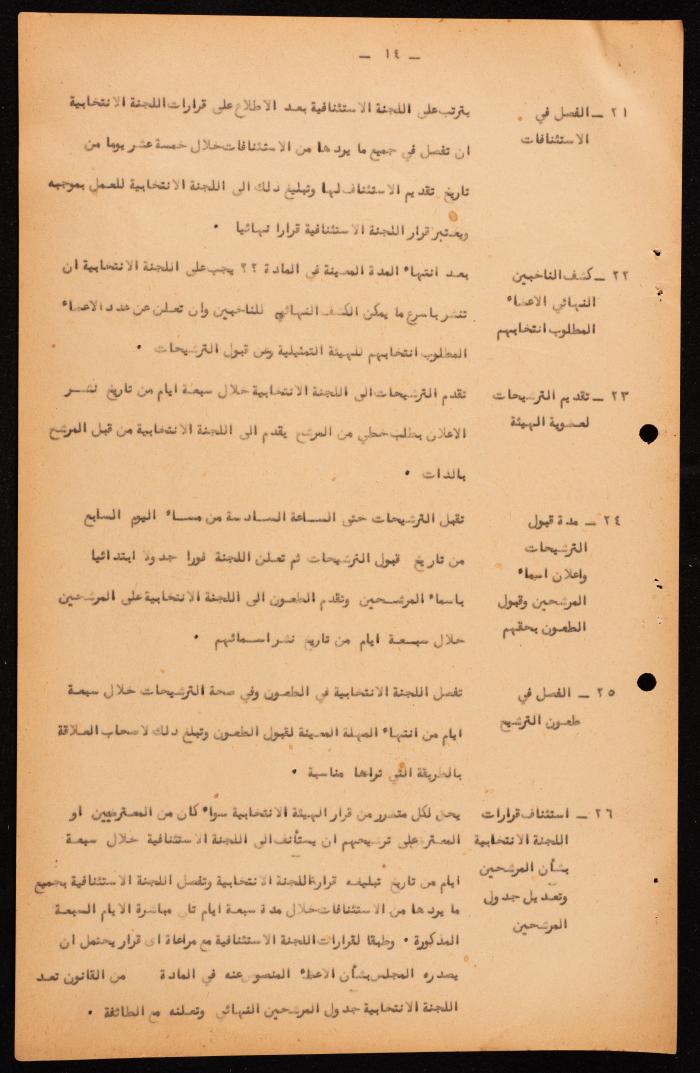 — ١٤ —
٢١ — الفصل في
الاستئنافات
يترتب على اللجنة الاستئنافية بعد الاطلاع على قرارات اللجنة الانتخابية
ان تفصل في جميع ما يردها من الاستئنافات خلال خمسة عشر يوما من
تاريخ تقديم الاستئناف لها وتبليغ ذلك الى اللجنة الانتخابية للعمل بموجبه
ويعتبر قرار اللجنة الاستئنافية قرارا نهائيا .
٢٢ — كشف الناخبين
النهائي الاعضاء
المطلوب انتخابهم
بعد انتهاء المدة المعينة في المادة ٢٢ يجب على اللجنة الانتخابية ان
تنشر باسرع ما يمكن الكشف النهائي للناخبين وان تعلن عن عدد الاعضاء
المطلوب انتخابهم للهيئة التمثيلية وعن قبول الترشيحات .
٢٣ — تقديم الترشيحات
لعضوية الهيئة
تقدم الترشيحات الى اللجنة الانتخابية خلال سبعة ايام من تاريخ نشر
الاعلان بطلب خطي من المرشح يقدم الى اللجنة الانتخابية من قبل المرشح
بالذات .
٢٤ — مدة قبول
الترشيحات
واعلان اسماء
المرشحين وقبول
الطعون بحقهم
تقبل الترشيحات حتى الساعة السادسة من مساء اليوم السابع
من تاريخ قبول الترشيحات ثم تعلن اللجنة فورا جدولا ابتدائيا
باسماء المرشحين وتقدم الطعون الى اللجنة الانتخابية على المرشحين
خلال سبعة ايام من تاريخ نشر اسمائهم .
٢٥ — الفصل في
طعون الترشيح
تفصل اللجنة الانتخابية في الطعون وفي صحة الترشيحات خلال سبعة
ايام من انتهاء المهلة المعينة لقبول الطعون وتبلغ ذلك لاصحاب العلاقة
بالطريقة التي تراها مناسبة .
٢٦ — استئناف قرارات
اللجنة الانتخابية
بشأن المرشحين
وتعديل جدول
المرشحين
يحق لكل متضرر من قرار الهيئة الانتخابية سواء كان من المعترضين او
المعترض على ترشيحهم ان يستأنف الى اللجنة الاستئنافية خلال سبعة
ايام من تاريخ تبليغه قرار اللجنة الانتخابية وتفصل اللجنة الاستئنافية بجميع
ما يردها من الاستئنافات خلال مدة سبعة ايام تلي مباشرة الايام السبعة
المذكورة . وطبقا لقرارات اللجنة الاستئنافية مع مراعاة اى قرار يحتمل ان
يصدره المجلس بشأن الاعضاء المنصوص عنه في المادة من القانون تعد
اللجنة الانتخابية جدول المرشحين النهائي وتعلنه مع الطائفة .